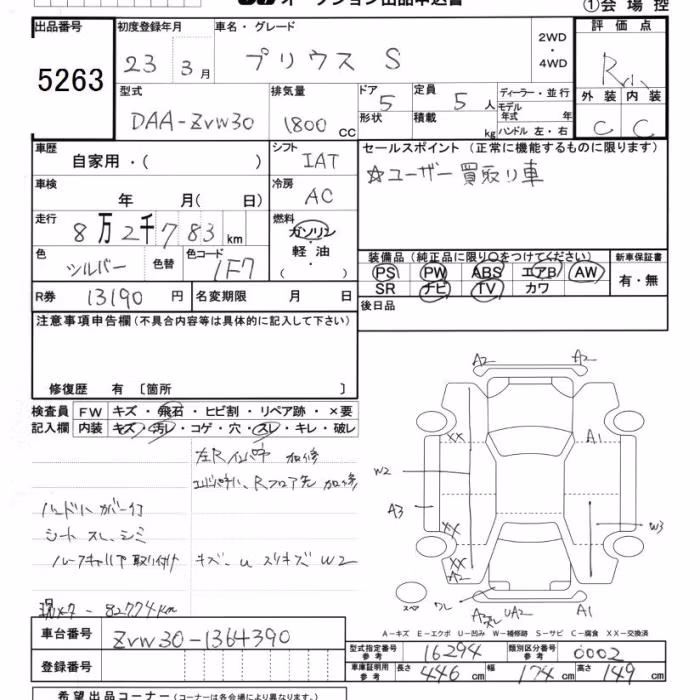 オークション出品申込書 ①会場控
出品番号 初度登録年月 車名・グレード 2WD・4WD 評価点
5263 23年3月 プリウス S R
外装 内装
C C
型式 排気量 ドア 定員 ディーラー・並行
DAA-ZVW30 1800cc 5 5人 モデル年式 年
形状 積載 kg ハンドル 左・右
車歴 シフト セールスポイント (正常に機能するものに限ります)
自家用・( ) IAT ☆ユーザー買取り車
車検 冷房
年 月( 日) AC
走行 燃料
8万2千783km ガソリン・軽油・( )
色 シルバー 色替 色コード 1F7
装備品(純正品に限り○をつけてください) 新車保証書
PS PW ABS エアB AW 有・無
SR ナビ TV カワ
R券 13190円 名変期限 月 日 後日品
注意事項申告欄(不具合内容等は具体的に記入して下さい)
修復歴 有〔箇所 〕
検査員 FW キズ・飛石・ヒビ割・リペア跡・×要
記入欄 内装 キズ・汚レ・コゲ・穴・スレ・キレ・破レ
加修
Rフロア先 加修
ハンドルカバー付
シート スレ、シミ
取り付け キズ
W2
82774km
A2 A2
XX A1
W2
A3
XX W3
XX
A2
スペア ワレ A2 スレ UA2 A1
A-キズ E-エクボ U-凹み W-補修跡 S-サビ C-腐食 XX-交換済
車台番号 ZVW30-1364390
登録番号
型式指定番号 参考 16294 類別区分番号 参考 0002
車庫証明用 参考 長さ 446cm 幅 174cm 高さ 149cm
希望出品コーナー(コーナーは各会場により異なります。)